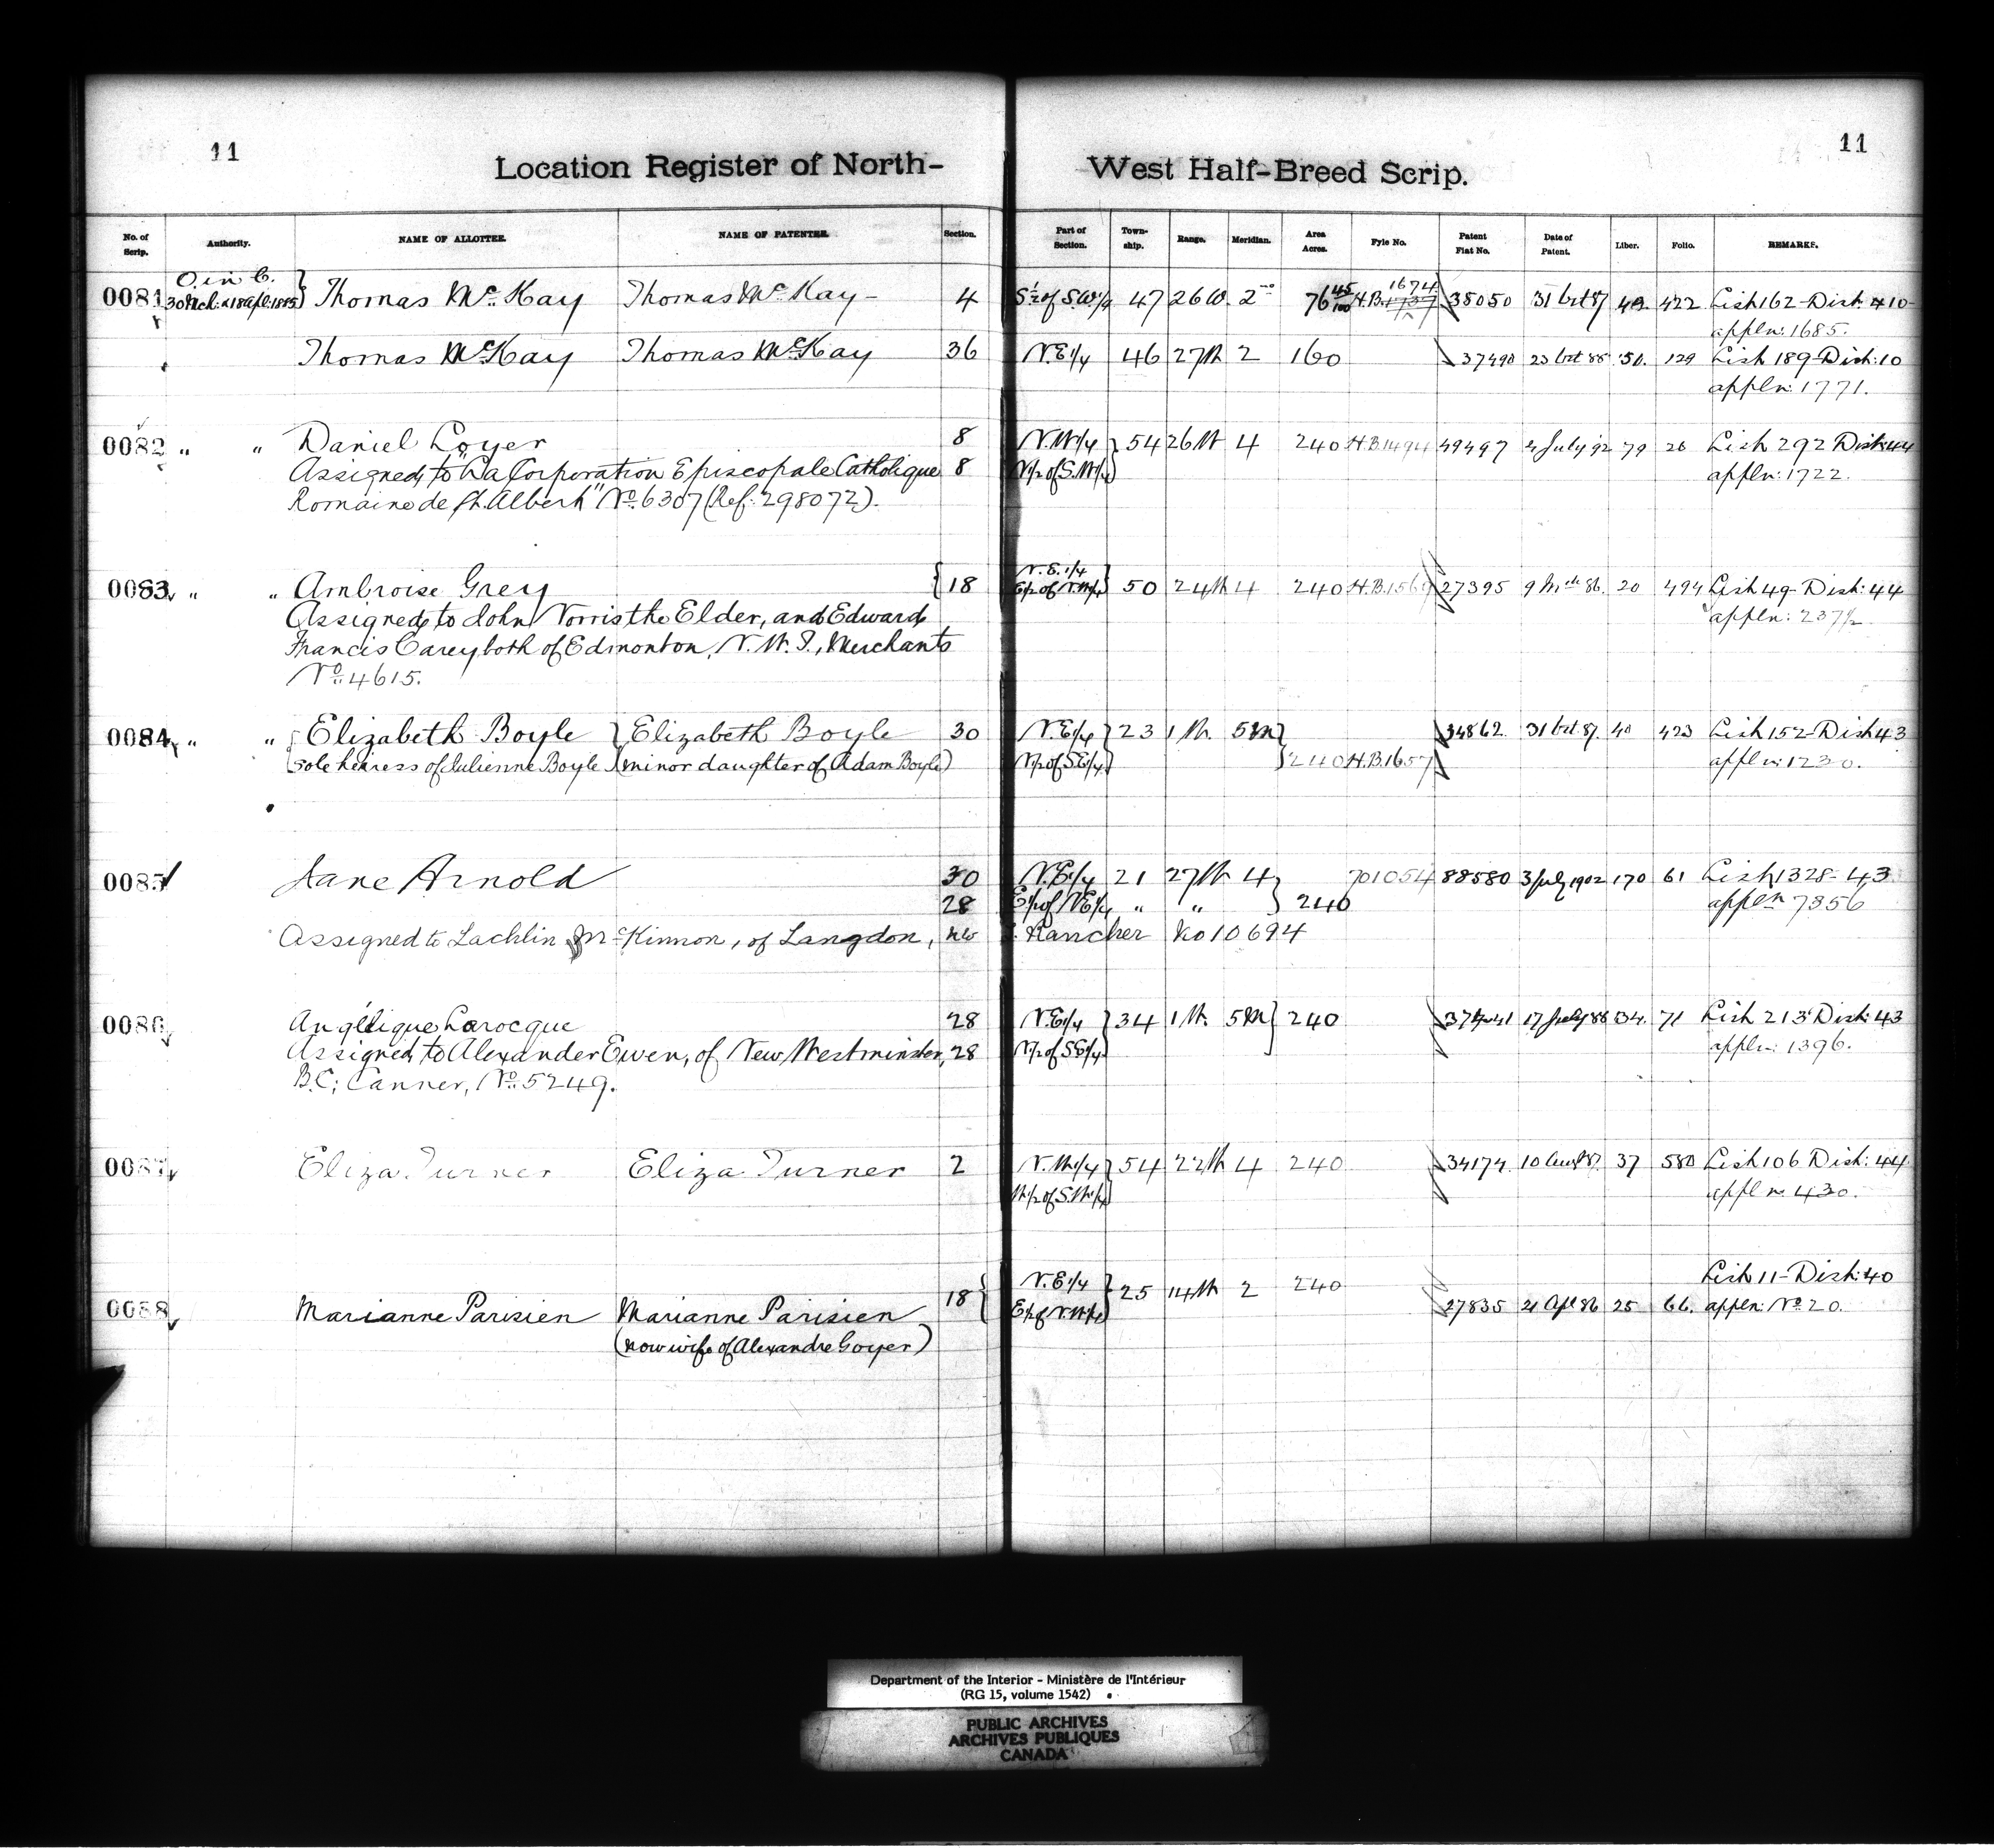 11
11
Location Register of North-West Half-Breed Scrip.
No. of Scrip. Authority. NAME OF ALLOTTEE. NAME OF PATENTEE. Section. Part of Section. Town-ship. Range. Meridian. Area Acres. Fyle No. Patent Fiat No. Date of Patent. Liber. Folio. REMARKS.
O. in C. 1674
0081 30 Mch: & 18 Apl: 1885 } Thomas McKay Thomas McKay - 4 S½ of S.W.¼ 47 26 W. 2nd 76 45/100 H.B. 1737 38050 31 Oct 87 42 422 List 162 - Dist: 410
appln: 1685.
Thomas McKay Thomas McKay 36 N.E¼ 46 27 W 2 160 37490 23 Oct 88 50. 129 List 189 - Dist: 10
appln: 1771.
0082 " " Daniel Loyer 8 N.W¼ } 54 26 W 4 240 H.B. 1494 49497 4 July 92 79 26 List 292 Dist: 44
Assigned to "La Corporation Episcopale Catholique 8 N½ of S.W¼ } appln: 1722.
Romaine de St. Albert" No. 6307 (Ref: 298072).
N.E. ¼
0083 " " Ambroise Grey { 18 E½ of N.W¼ } 50 24 W 4 240 H.B. 1569 27395 9 Mch 86. 20 494 List 49 - Dist: 44
Assigned to John Norris the Elder, and Edward appln: 237½
Francis Carey both of Edmonton, N.W.T., Merchants
No. 4615.
0084 " " { Elizabeth Boyle } Elizabeth Boyle 30 N.E¼ } 23 1 W. 5 M } 34862 31 Oct 87. 40 423 List 152 - Dist 43
sole heiress of Julienne Boyle (minor daughter of Adam Boyle) N½ of S.E¼ } 240 H.B. 1657 appln: 1230.
0085 Jane Arnold 30 N.E¼ 21 27 W 4 } 701054 88580 3 July 1902 170 61 List 1328 - 43
28 E½ of N.E¼ " " } 240 appln 7356
Assigned to Lachlin McKinnon, of Langdon, NW Rancher No 10694
0086 Angélique Larocque 28 N.E¼ } 34 1 W. 5 M } 240 17 July 88 71 List 213 Dist: 43
Assigned to Alexander Ewen, of New Westminster, 28 N½ of S.E¼ } appln: 1396.
B.C; Canner, No. 5249.
0087 Eliza Turner Eliza Turner 2 N.W¼ } 54 22 W 4 240 34174 10 Augt 87. 37 580 List 106 Dist: 44
W½ of S.W¼ } appln 430.
N.E¼ } List 11 - Dist: 40
0088 Marianne Parisien Marianne Parisien 18 { E½ of N.W¼ } 25 14 W 2 240 27835 21 Apl 86 25 66. appln: No. 20.
(now wife of Alexandre Goyer)
Department of the Interior - Ministère de l'Intérieur
(RG 15, volume 1542)
PUBLIC ARCHIVES
ARCHIVES PUBLIQUES
CANADA